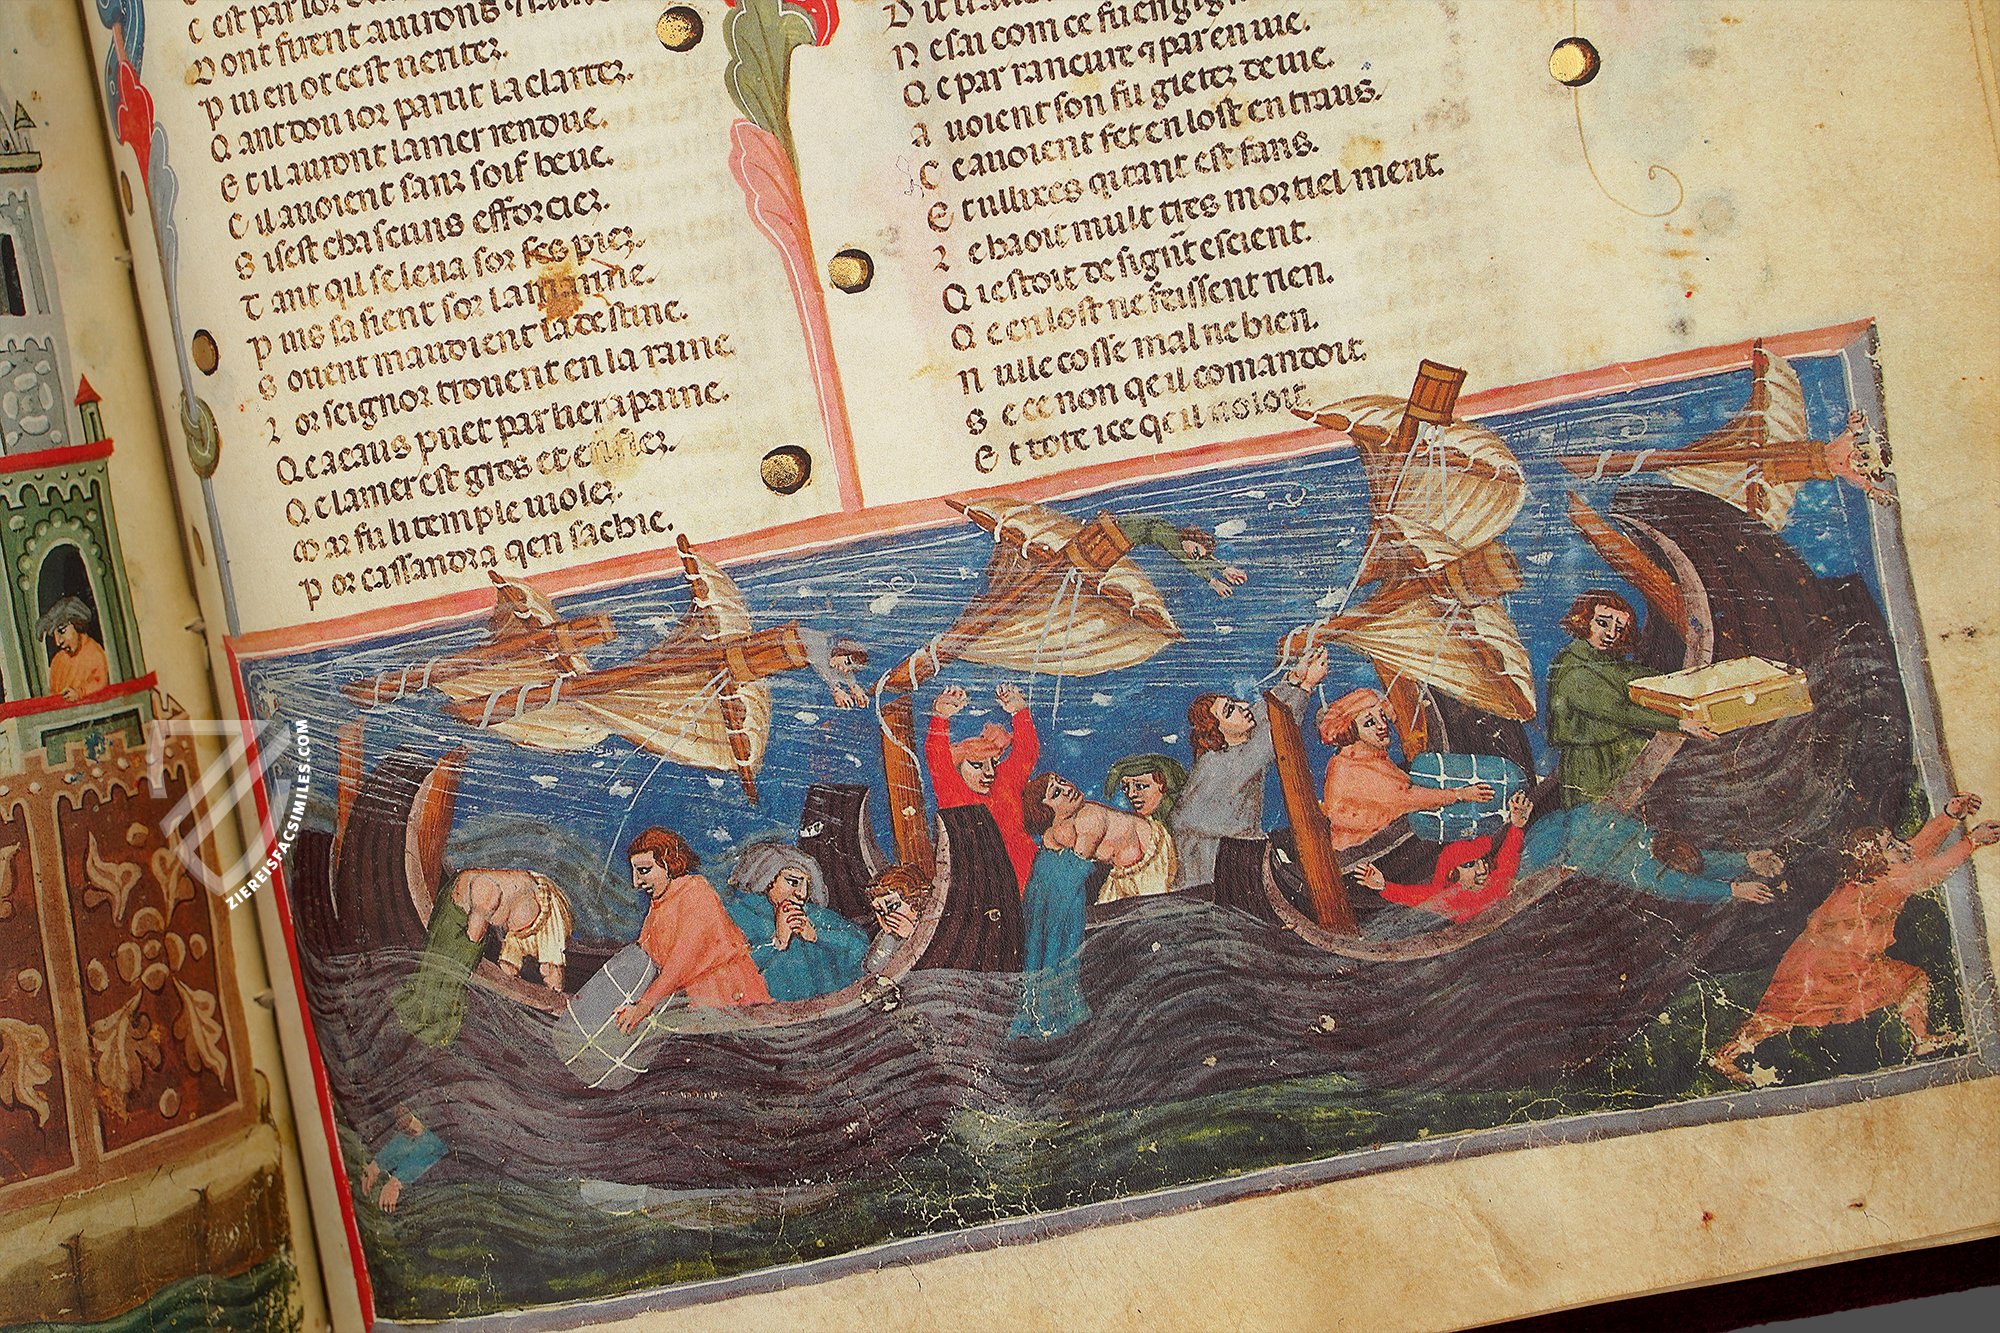 C est par lor
D ont furent aurons
p m en ot cest uentez.
Q ant dou ior parut la clartez.
E t il auront la mer rendue.
C il auoient sanz soif beue.
S i sest chascuns efforciez.
T ant qil se leua sor ses piez.
p uis sasient sor lamanne.
S ouent maudient la destine.
L or seignor trouent en la raine
Q e a eaus puet parler a paine.
Q e la mer est gros et
M ar fu li temple uiolez.
p or cassandra qen sachie.
N e sai com ce fu engign
Q e par rancure ⁊ par enuie.
A uoient son fil gietez de uie.
C e auoient fet en lost entraus.
E t ullixes qi tant est faus.
L e haoit mult tres mortiel ment.
Q i estoit de si grant escient.
Q e en lost ne feissent rien.
N ulle cosse mal ne bien.
S e ce non qe il comandoit.
E t tote ice qe il uoloit.
ZIEREISFACSIMILES.COM